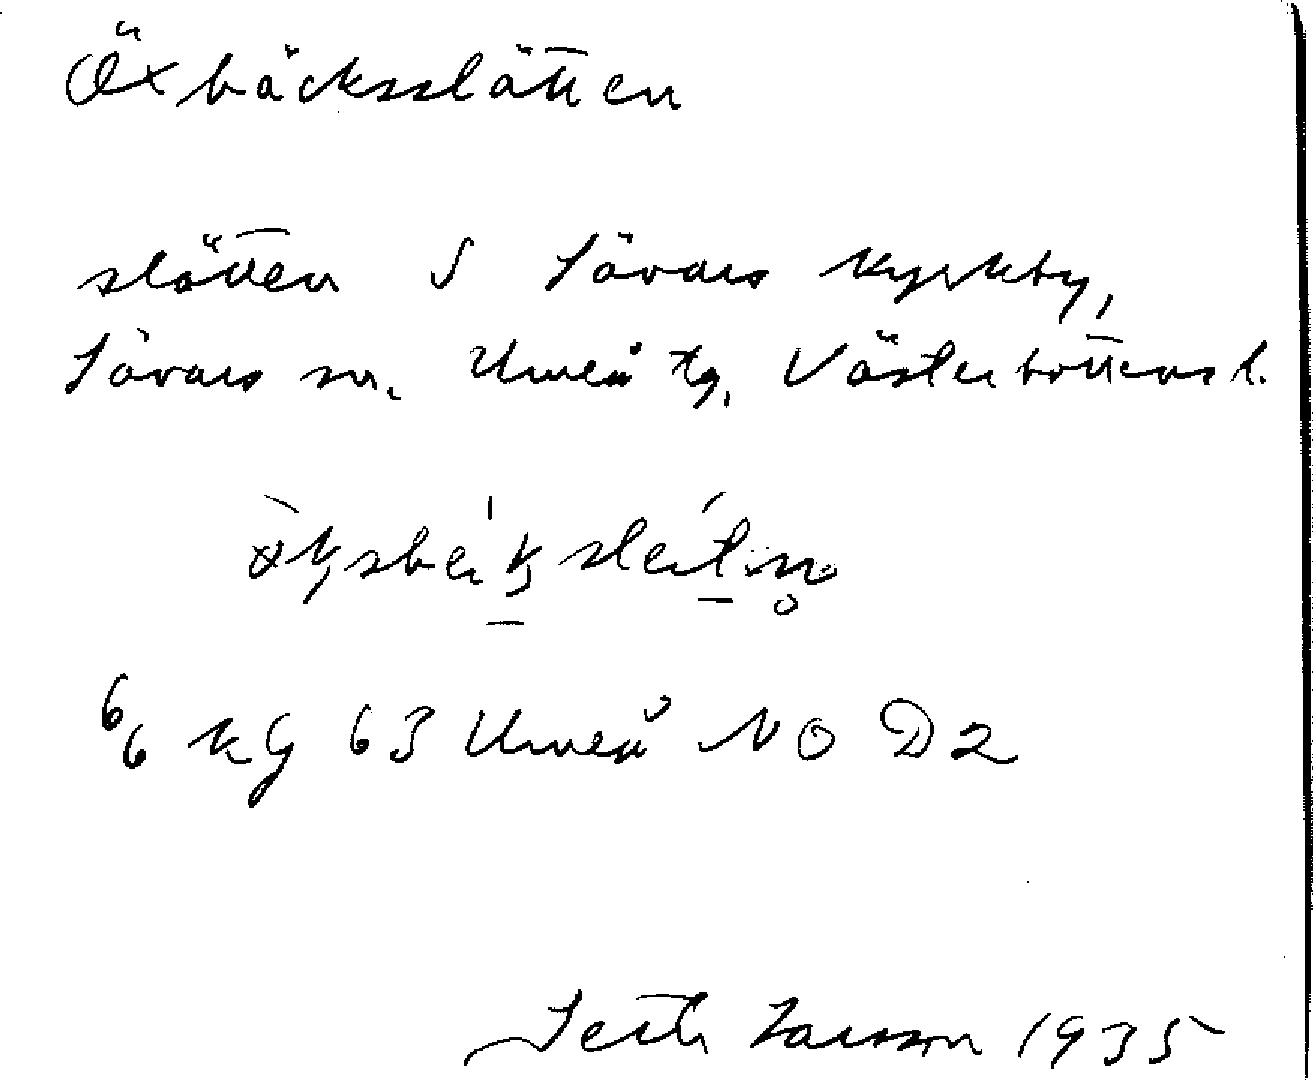 Öxbäcksslätten
slätten S Sävars kyrkby,
Sävars sn. Umeå tg, Västerbottens l.
6/6 kg 63 Umeå NO D2
Seth Larsson 1935